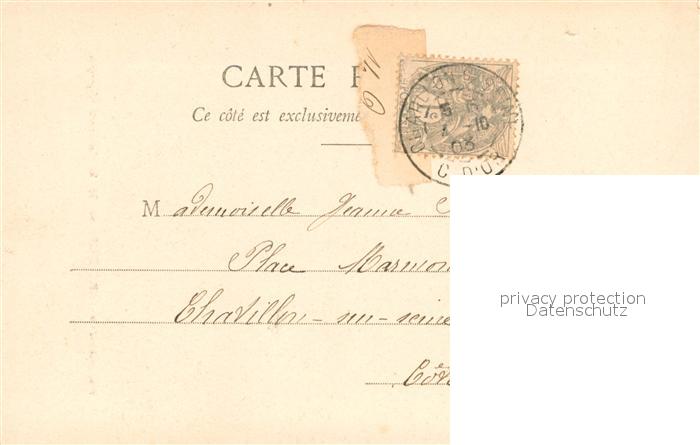 CARTE P
Ce côté est exclusiveme
CHATILLON-S-SEINE
10
03
C. D'OR
Mademoiselle Jeanne
Place Marmon
Chatillon-sur-seine
Côte
privacy protection
Datenschutz